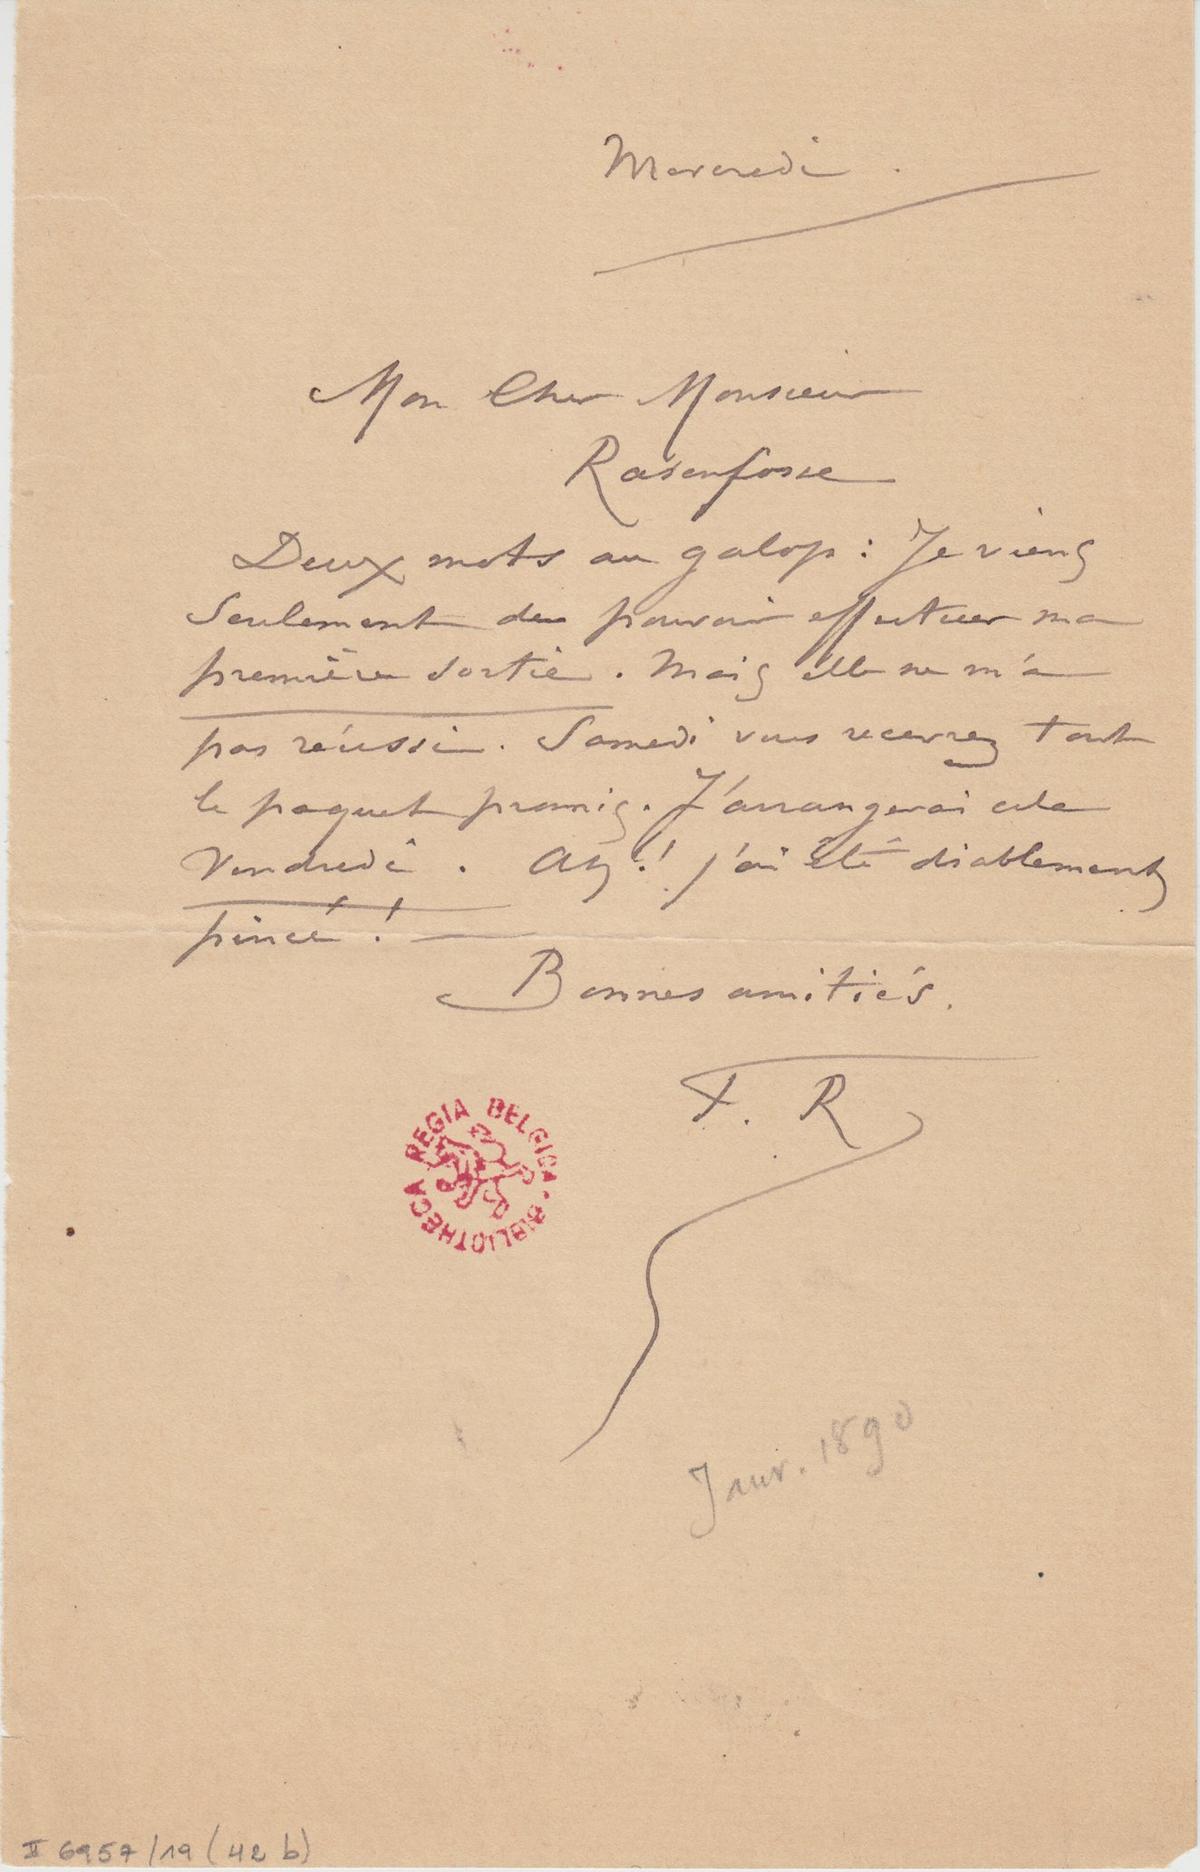 Mercredi.
Mon Cher Monsieur
Rassenfosse
Deux mots au galop : Je viens
Seulement de pouvoir effectuer ma
première sortie. Mais elle ne m'a
pas réussi. Samedi vous recevrez tout
le paquet promis. J'arrangerai cela
Vendredi. Ah ! j'ai été diablement
pincé ! —
Bonnes amitiés.
F. R
REGIA BELGICA · BIBLIOTHECA
Janv. 1890
II 6957/19 (42 b)